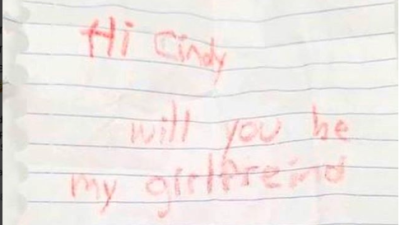 Hi Cindy
will you be
my girlfreind